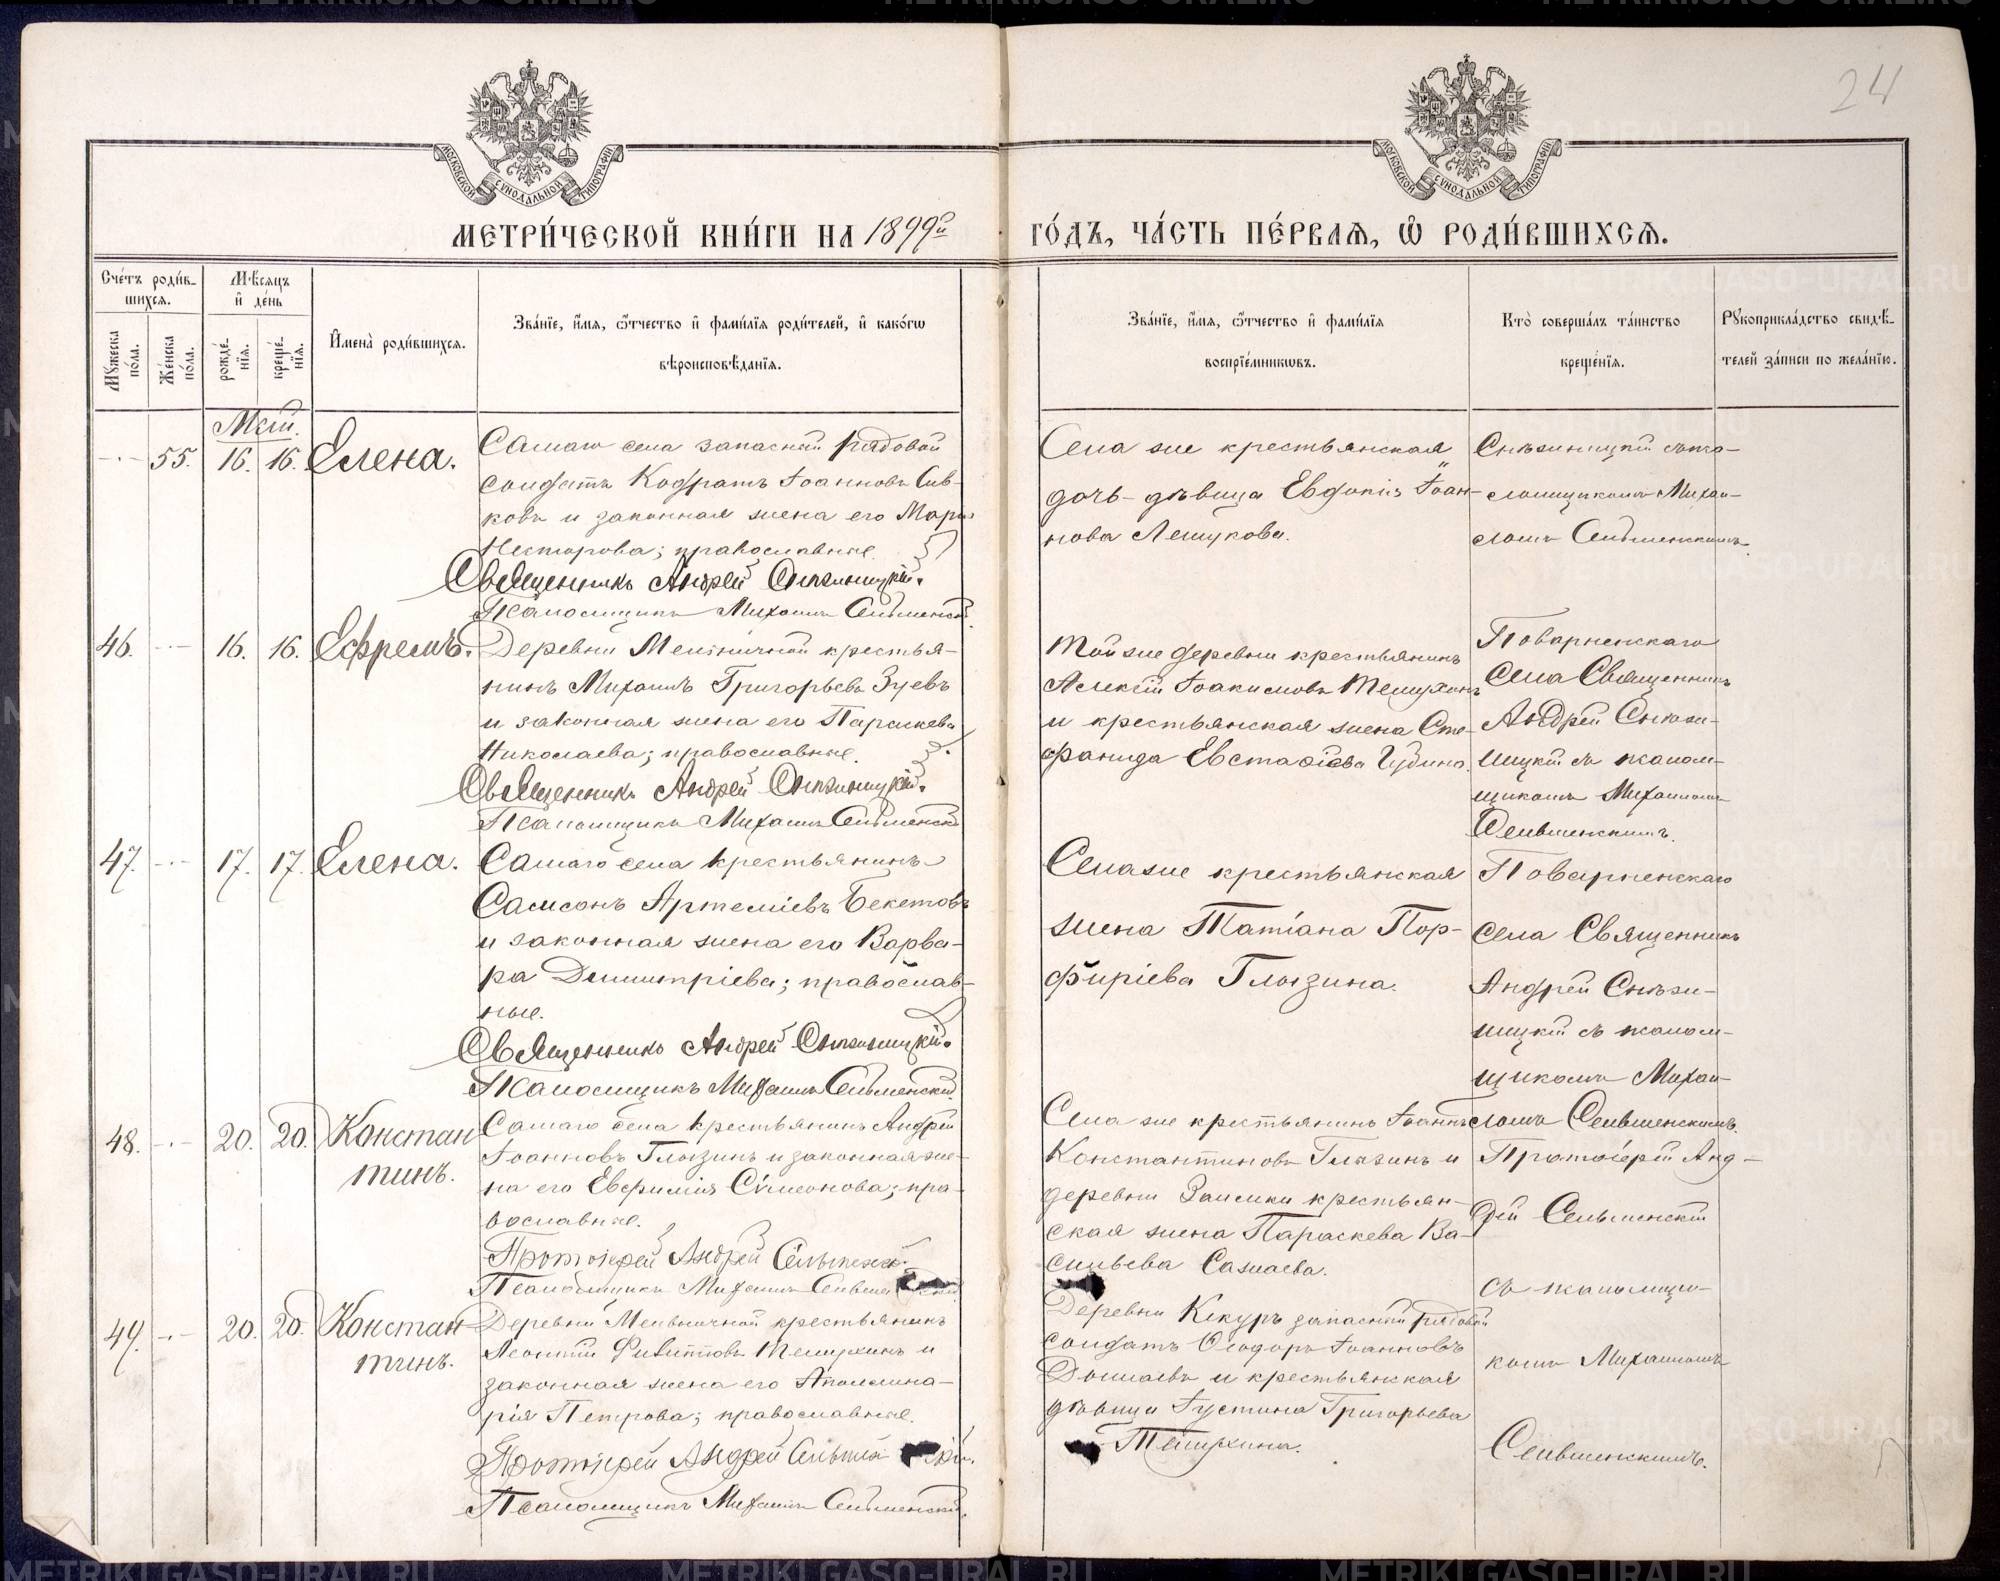 24
МОСКОВСКОЙ СѴНОДАЛЬНОЙ ТИПОГРАФІИ
МОСКОВСКОЙ СѴНОДАЛЬНОЙ ТИПОГРАФІИ
МЕТРИ́ЧЕСКОЙ КНИ́ГИ НА 1899й
ГО́ДЪ, ЧА́СТЬ ПЕ́РВАѦ, Ѡ҆ РОДИ́ВШИХСѦ.
Сче́тъ роди́в-
шихсѧ.
Мѣ́сѧцъ
и҆ де́нь
Мꙋ́жеска по́ла.
Же́нска по́ла.
рожде́-нїѧ.
креще́-нїѧ.
И҆мена̀ роди́вшихсѧ.
Зва́нїе, и҆́мѧ, ѻ҆́тчество и҆ фами́лїѧ роди́телей, и҆ како́гѡ
вѣроисповѣ́данїѧ.
Зва́нїе, и҆́мѧ, ѻ҆́тчество и҆ фами́лїѧ
воспрїе́мникѡвъ.
Кто̀ соверша́лъ та́инство
креще́нїѧ.
Рꙋкоприкла́дство свидѣ́-
телей за́писи по жела́нїю.
Май.
-·- 55. 16. 16. Елена.
Самаго села запасный рядовой
солдатъ Кодратъ Іоанновъ Сив-
ковъ и законная жена его Марія
Несторова; православные.
Священникъ Андрей Снѣжницкій.
Псаломщикъ Михаилъ Сельменскій
Села же крестьянская
дочь-дѣвица Евдокія Іоан-
нова Лешукова.
Снѣжницкій съ пса-
ломщикомъ Михаи-
ломъ Сельменскимъ.
46. -·- 16. 16. Ефремъ.
Деревни Мельничной крестья-
нинъ Михаилъ Григорьевъ Зуевъ
и законная жена его Параскева
Николаева; православные.
Священникъ Андрей Снѣжницкій.
Псаломщикъ Михаилъ Сельменскій
Той же деревни крестьянинъ
Алексій Іоакимовъ Телиухинъ
и крестьянская жена Сте-
фанида Евстафіева Чудино
Поварненскаго
села Священникъ
Андрей Снѣжи-
ницкій съ псалом-
щикомъ Михаиломъ
Сельменскимъ.
47. -·- 17. 17. Елена.
Самаго села крестьянинъ
Самсонъ Артеміевъ Бекетовъ
и законная жена его Варва-
ра Димитріева; православ-
ные.
Священникъ Андрей Снѣжницкій.
Псаломщикъ Михаилъ Сельменскій.
Села же крестьянская
жена Татіана Пор-
фиріева Глызина.
Поварненскаго
села Священникъ
Андрей Снѣжи-
ницкій съ псалом-
щикомъ Михаи-
ломъ Сельменскимъ.
48. -·- 20. 20. Констан
тинъ.
Самаго села крестьянинъ Андрей
Іоанновъ Глызинъ и законная же-
на его Евфимія Симеонова; пра-
вославные.
Протоіерей Андрей Сельменскій.
Псаломщикъ Михаилъ Сельменскій
Села же крестьянинъ Іоаннъ
Константиновъ Глызинъ и
деревни Заимки крестьян-
ская жена Параскева Ва-
сильева Сажаева.
Протоіерей Анд-
рей Сельменскій
49. -·- 20. 20. Констан-
тинъ.
Деревни Мельничной крестьянинъ
Леонтій Филипповъ Телиухинъ и
законная жена его Аполлина-
рія Петрова; православные.
Протоіерей Андрей Сельменскій.
Псаломщикъ Михаилъ Сельменскій.
Деревни Кекуръ запасный рядовой
солдатъ Ѳеодоръ Іоанновъ
и крестьянская
дѣвица Іустина Григорьева
Телиухина.
съ псаломщи-
комъ Михаиломъ
Сельменскимъ.
METRIKI.GASO-URAL.RU